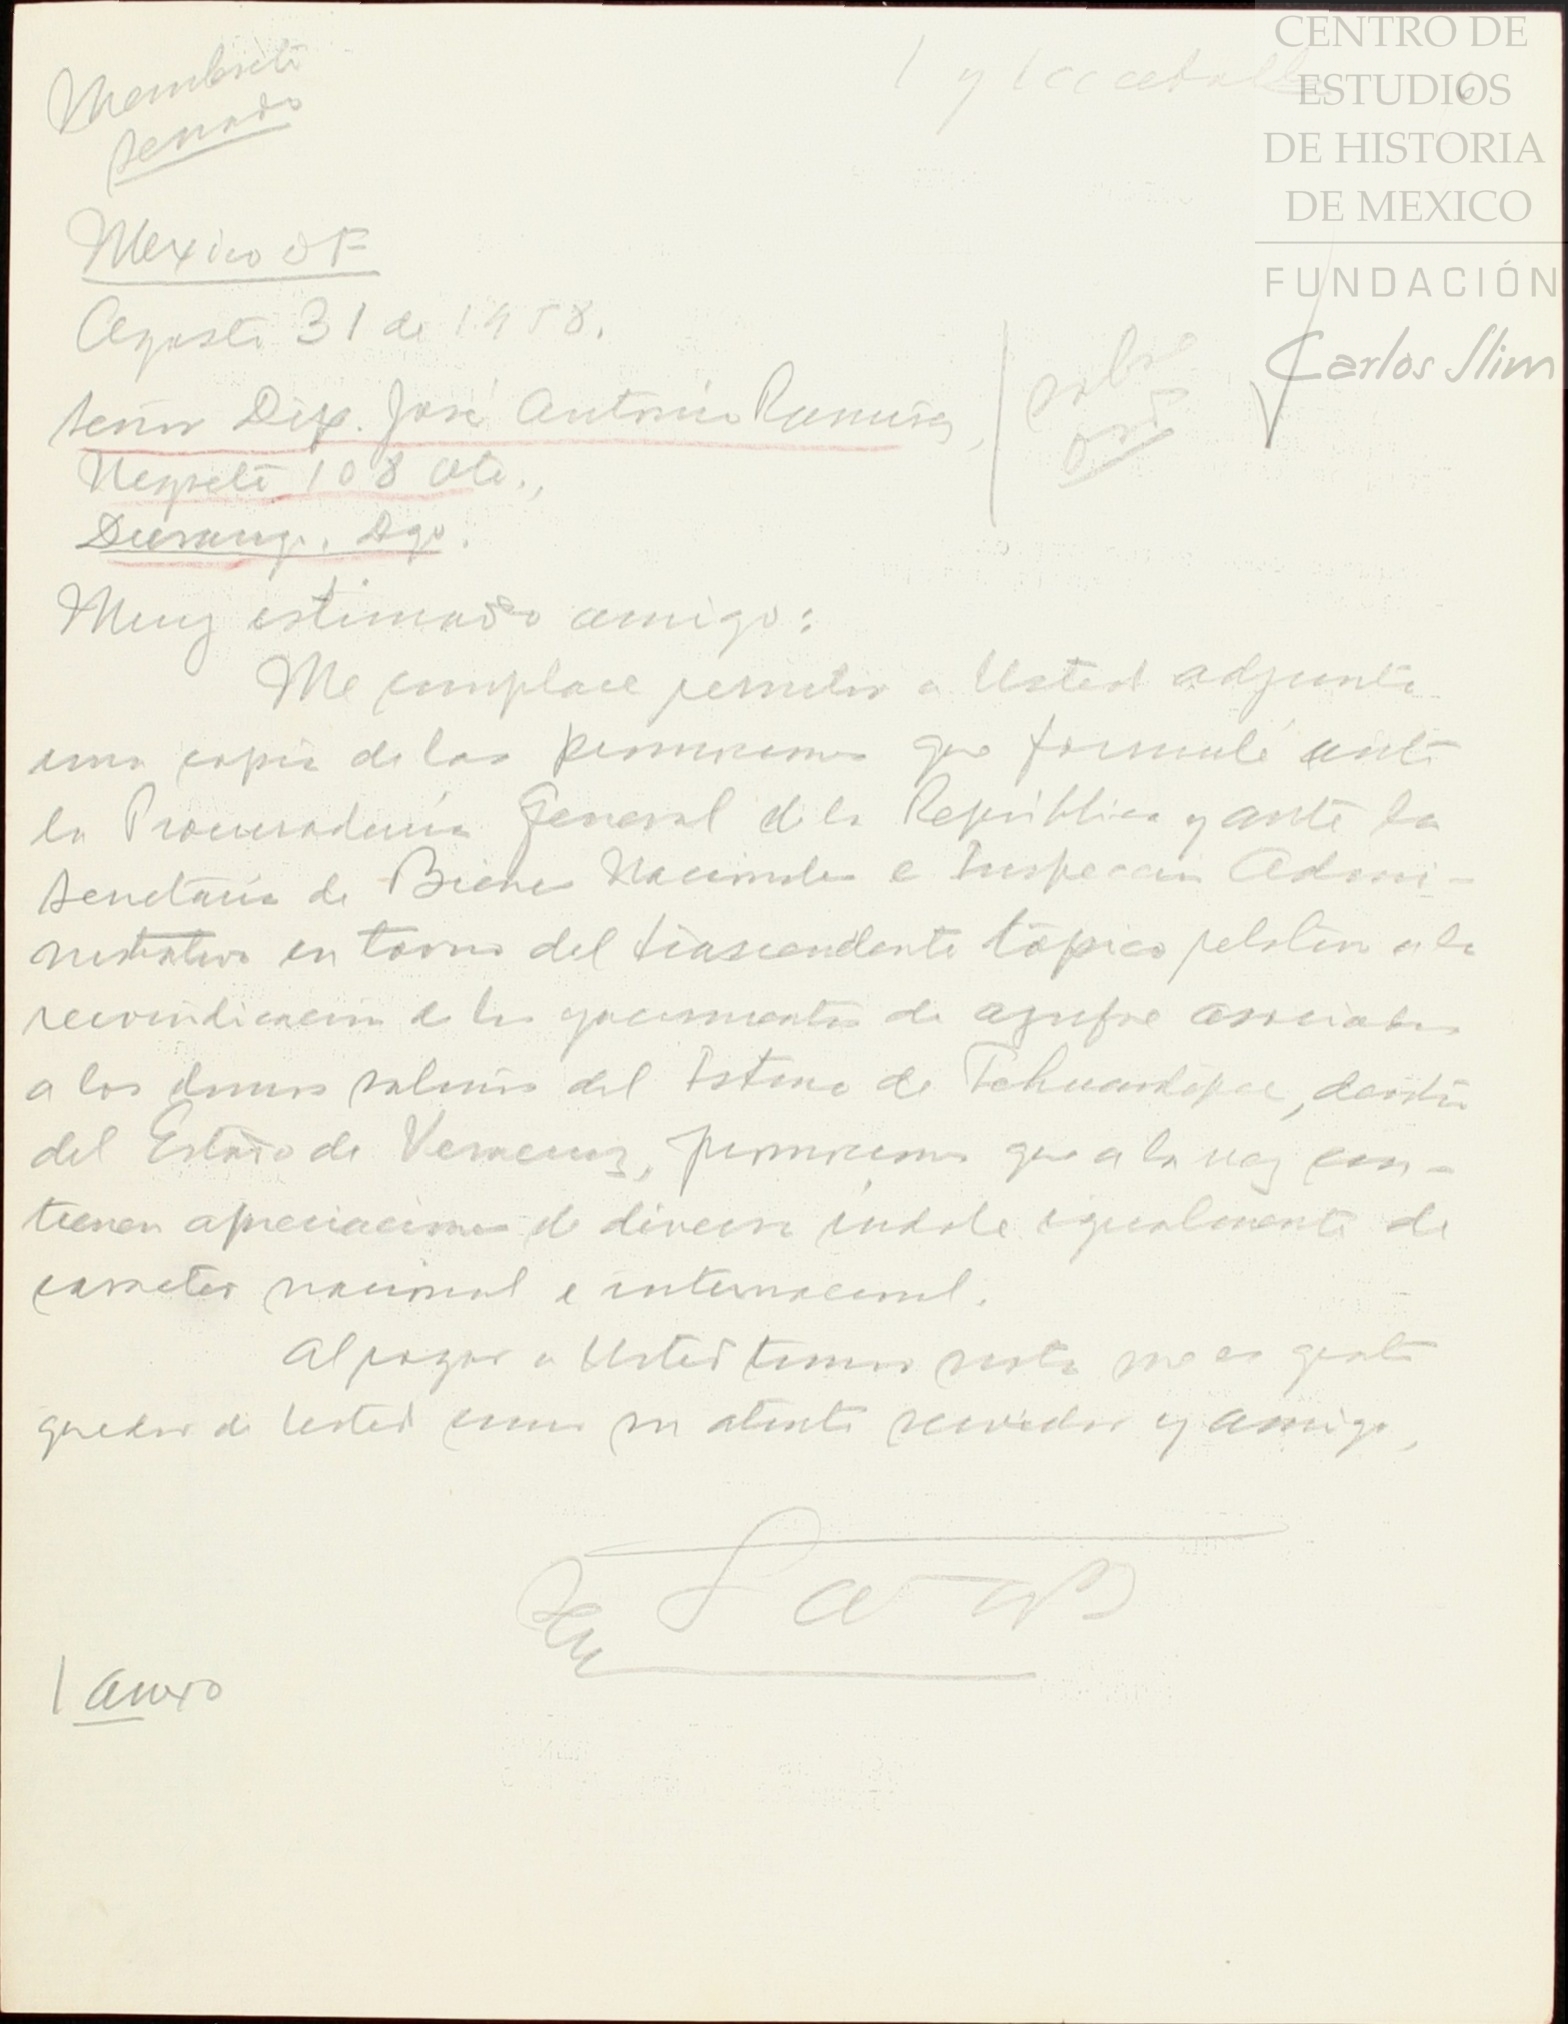 Membrete
Senado
1 y 1 cc
CENTRO DE
ESTUDIOS
DE HISTORIA
DE MEXICO
FUNDACIÓN
Carlos Slim
Mexico DF
Agosto 31 de 1958.
Señor Dip. José Antonio Ramírez,
Negrete 108 Ote.,
Durango, Dgo.
sobre
Muy estimado amigo:
Me complace remitir a Usted adjunta
una copia de las promociones que formulé ante
la Procuraduría General de la República y ante la
Secretaría de Bienes Nacionales e Inspección Admi-
nistrativa en torno del trascendente tópico relativo a la
reivindicación de los yacimientos de azufre asociados
a los domos salinos del Istmo de Tehuantepec, dentro
del Estado de Veracruz, promociones que a la vez con-
tienen apreciaciones de diversa índole igualmente de
caracter nacional e internacional.
Al rogar a Usted tomar nota me es grato
quedar de Usted como su atento servidor y amigo,
1 anexo